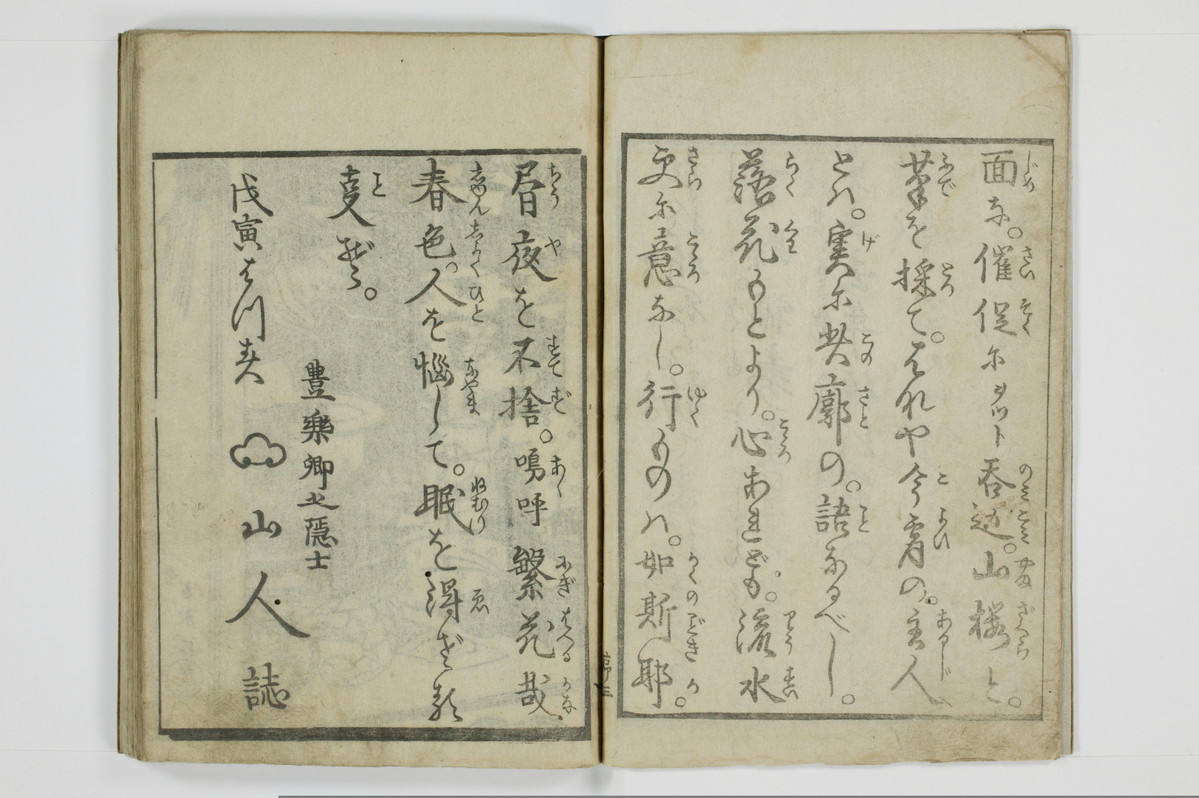 面な。催促にヲツト呑込。山桜と。
筆を採て。はれや今宵の。主人
とハ。実に此廓の。語なるべし。
落花もとより。心あれども。流水
更に意なし。行ものハ。如斯耶。
昼夜を不捨。嗚呼繁花哉。
春色。人を惱して。眠を得ざる
こと
豊楽卿之隠士
戊寅はつ春
山人誌
序三